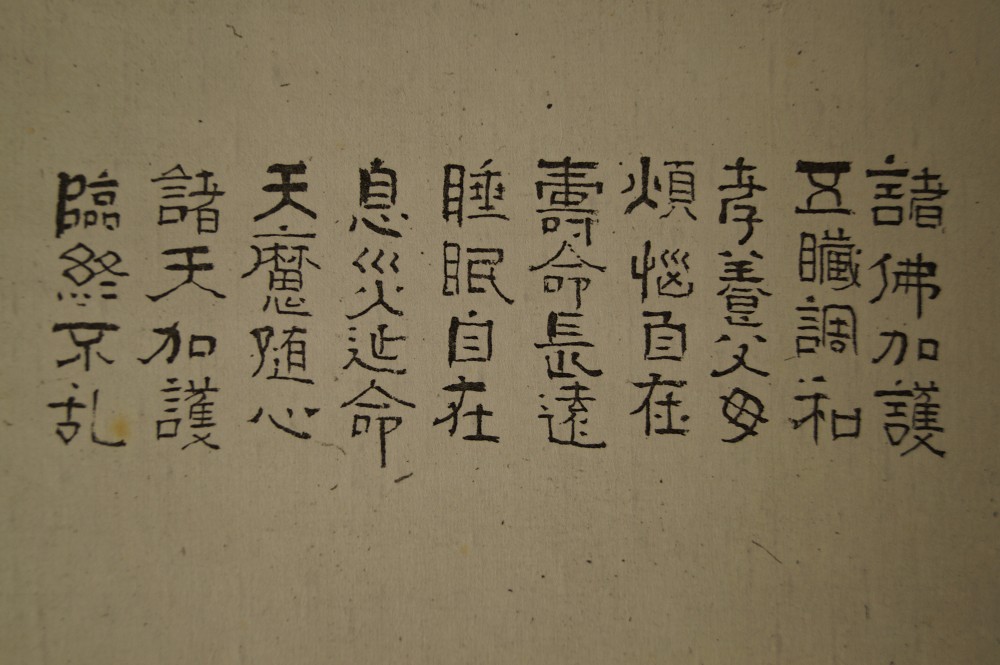 諸佛加護
五臓調和
孝養父母
煩悩自在
壽命長遠
睡眠自在
息災延命
天魔随心
諸天加護
臨終不乱